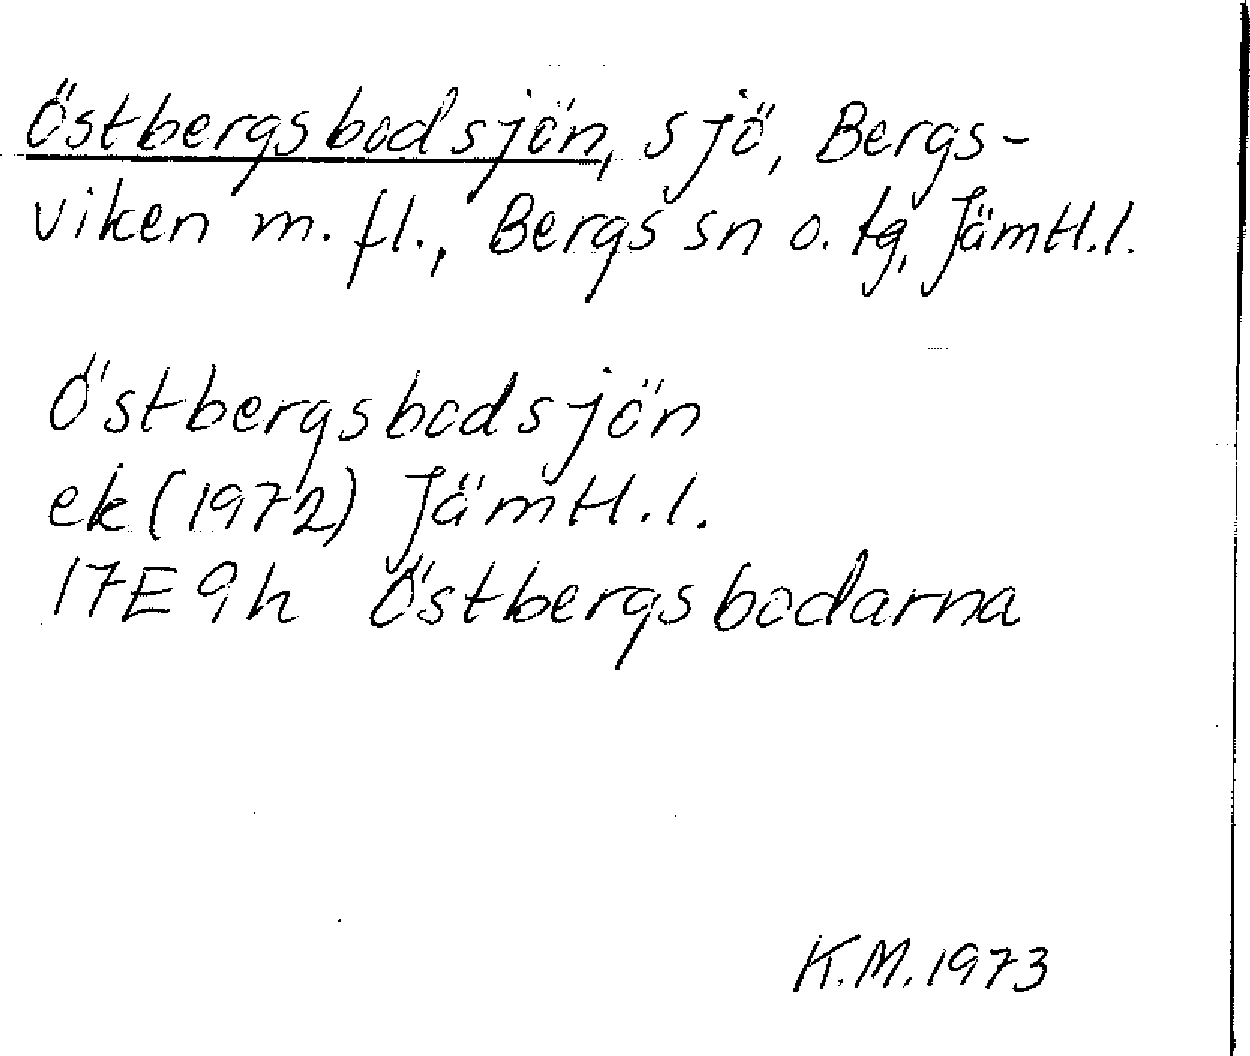 Östbergsbodsjön, sjö, Bergs-
viken m. fl., Bergs sn o. tg, Jämtl. l.
Östbergsbodsjön
ek (1972) Jämtl. l.
17E 9h Östbergsbodarna
K.M. 1973